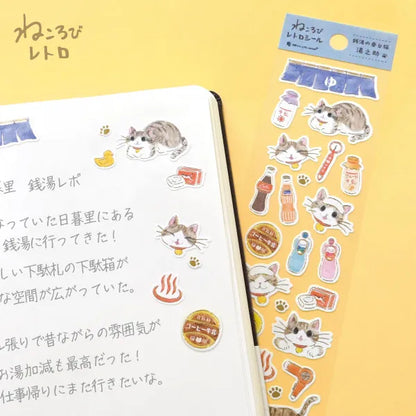 ねころび
レトロ
ねころび
レトロシール
銭湯の看板猫
湯之助
ゆ
里 銭湯レポ
なっていた日暮里にある
銭湯に行ってきた！
しい下駄札の下駄箱が
な空間が広がっていた。
張りで昔ながらの雰囲気が
お湯加減も最高だった！
仕事帰りにまた行きたいな。
コーヒー牛乳
コーヒー牛乳